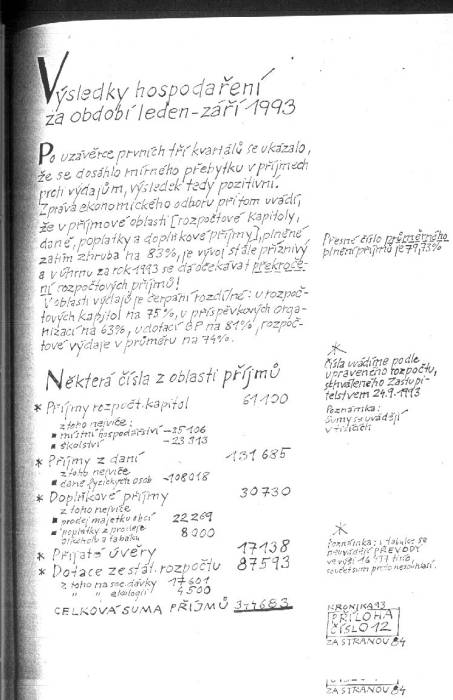 Výsledky hospodaření
za období leden-září 1993
Po uzávěrce prvních tří kvartálů se ukázalo,
že se dosáhlo mírného přebytku v příjmech
proti výdajům, výsledek tedy pozitivní.
Zpráva ekonomického odboru přitom uvádí,
že v příjmové oblasti [rozpočtové kapitoly,
daně, poplatky a doplňkové příjmy], plněné
zatím zhruba na 83%, je vývoj stále příznivý
a v úhrnu za rok 1993 se dá očekávat překroče-
ní rozpočtových příjmů!
V oblasti výdajů je čerpání rozdílné: u rozpoč-
tových kapitol na 75%, u příspěvkových orga-
nizací na 63%, u dotací BP na 81%, rozpoč-
tové výdaje v průměru na 74%.
Přesné číslo průměrného
plnění příjmů je 79,73%
Některá čísla z oblasti příjmů
* Příjmy rozpočt. kapitol 61100
z toho nejvíce:
▪ místní hospodářství - 25106
▪ školství - 23913
* Příjmy z daní 131685
z toho nejvíce
▪ daně fyzických osob - 108018
* Doplňkové příjmy 30730
z toho nejvíce
▪ prodej majetku obcí 22269
▪ poplatky z prodeje 8000
alkoholu a tabáku
* Přijaté úvěry 17138
* Dotace ze stát. rozpočtu 87593
z toho na soc. dávky 17601
" " ekologii 4500
CELKOVÁ SUMA PŘÍJMŮ 344683
*
Čísla uvádíme podle
upraveného rozpočtu,
schváleného Zastupi-
telstvem 24.9.1993
Poznámka:
Sumy se uvádějí
v tisících
*
Poznámka: v tabulce se
neuvádějí PŘEVODY
ve výši 16 437 tisíc,
součet sum proto nesouhlasí.
KRONIKA 93
PŘÍLOHA
ČÍSLO 12
ZA STRANOU 84
ČÍSLO 12
ZA STRANOU 84